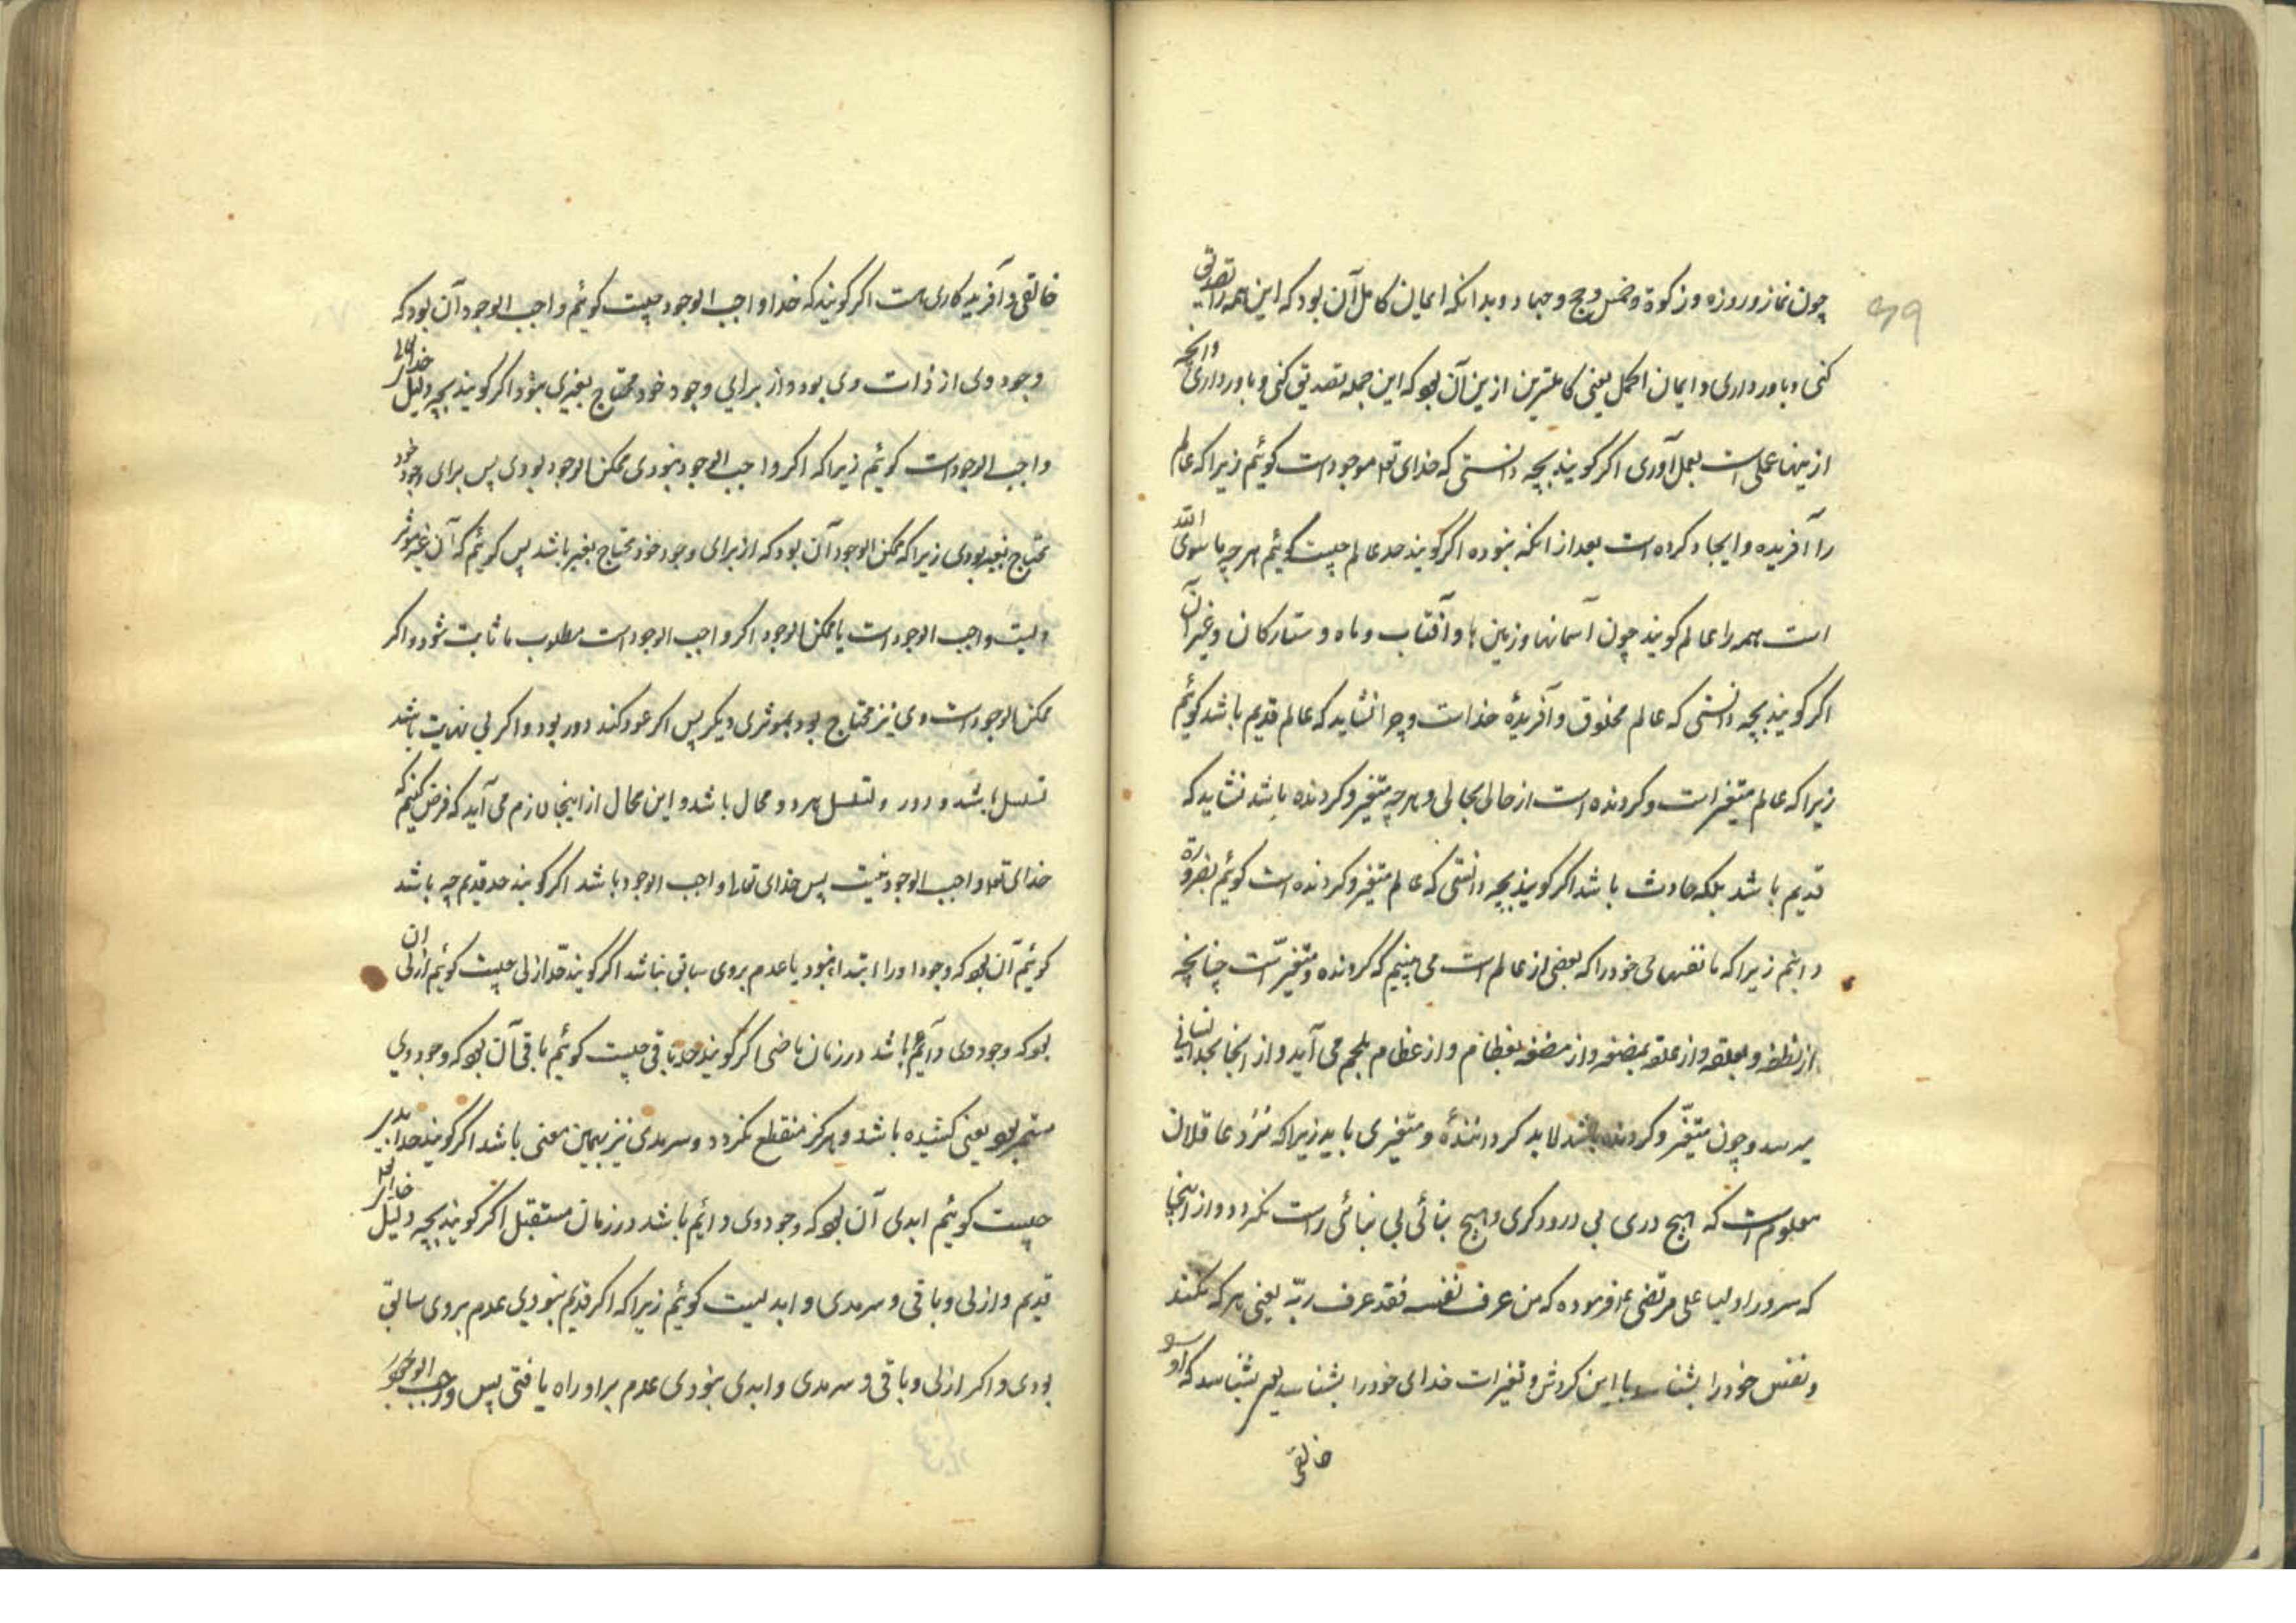 ۴۹
چون نماز و روزه و زکوة و خمس و حج و جهاد و بدانکه ایمان کامل آن بود که این همه را تصدیق
کنی و باور داری و ایمان اکمل یعنی کاملترین ازین آن بود که این جمله تصدیق کنی و باور داری و آنچه
ازینها عملی است بعمل آوری اکر کویند بچه دانستی که خدای تعا موجود است کوئیم زیرا که عالم
را آفریده و ایجاد کرده است بعد از انکه نبوده اکر کویند حد عالم چیست کوئیم هر چه ما سوی الله
است همه را عالم کویند چون آسمانها و زمین ها و آفتاب و ماه و ستارکان و غیر آن
اکر کویند بچه دانستی که عالم مخلوق و آفریدهٔ خداست و چرا نشاید که عالم قدیم باشد کوئیم
زیرا که عالم متغیر است و کردنده است از حالی بحالی و هر چه متغیر و کردنده باشد نشاید که
قدیم باشد بلکه حادث باشد اکر کویند بچه دانستی که عالم متغیر و کردنده است کوئیم بضرورة
دانیم زیرا که ما نفسهای خود را که بعضی از عالم است می بینیم که کردنده و متغیر است چنانچه
از نطفه و بعلقه و از علقه بمضغه و از مضغه بعظام و از عظام بلحم می آید و از انجا بحد انسانی
میرسد و چون متغیر و کردنده باشد لابد کردانندهٔ و متغیری باید زیرا که نزد عاقلان
معلوم است که هیچ دری بی درودکری و هیچ بنائی بی بنائی راست نکردد و از اینجا
که سرور اولیا علی مرتضی ع فرموده که من عرف نفسه فقد عرف ربّه یعنی هر که
و نفس خود را بشناسد با این کردش و تغیرات خدای خود را بشناسد یعنی بشناسد که او را
خالقی
خالقی و آفریدکاری هست اکر کویند که خدا واجب الوجود چیست کوئیم واجب الوجود آن بود که
وجود وی از ذات وی بود و از برایی وجود خود محتاج بغیری نبود اکر کویند بچه دلیل خدایتعالی
واجب الوجود است کوئیم زیرا که اکر واجب الوجود نبودی ممکن الوجود بودی پس برای وجود خود
محتاج بغیر بودی زیرا که ممکن الوجود آن بود که از برای وجود خود محتاج بغیر باشد پس کوئیم که آن غیر موثر
واجب الوجود است یا ممکن الوجود اکر واجب الوجود است مطلوب ما ثابت شود و اکر
ممکن الوجود است وی نیز محتاج بود بموثری دیکر پس اکر عود کند دور بود و اکر بی نهایت باشد
تسلسل باشد و دور و تسلسل هر دو محال باشد و این محال از اینجا لازم می آید که فرض کنیم که
خدای تعا واجب الوجود نیست پس خدای تعالی واجب الوجود باشد اکر کویند حد قدیم چه باشد
کوئیم آن بود که وجود او را ابتدا نبود یا عدم بروی سابق نباشد اکر کویند حد ازلی چیست کوئیم ازلی آن
بود که وجود وی دائم باشد در زمان ماضی اکر کویند حد باقی چیست کوئیم باقی آن بود که وجود وی
مستمر بود یعنی کشیده باشد و هرکز منقطع نکردد و سرمدی نیز بهمین معنی باشد اکر کویند حد ابدی
چیست کوئیم ابدی آن بود که وجود وی دائم باشد در زمان مستقبل اکر کویند بچه دلیل خدایتعالی
قدیم و ازلی و باقی و سرمدی و ابدیست کوئیم زیرا که اکر قدیم نبودی عدم بروی سابق
بودی و اکر ازلی و باقی و سرمدی و ابدی نبودی عدم براو راه یافتی پس واجب الوجود